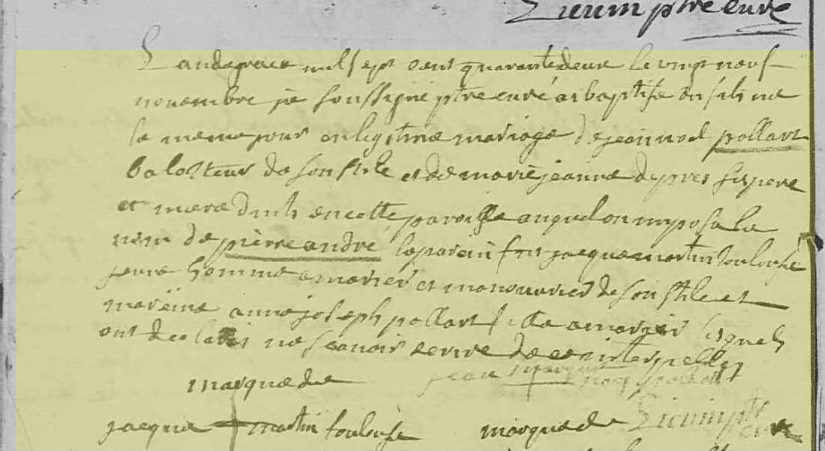 L'an de grace mil sept cent quarante deux le vingt neuf
novembre je soussigné ptre curé ai baptisé un fils né
le meme jour en legitime mariage de jean noel pollart
de son stile et de marie jeanne depres ses pere
et mere en cette paroisse auquel on imposa le
nom de pierre andré le parein fut jacque martin toulouse
jeune homme a marier et manouvrier de son stile et
mareine anne joseph pollart fille a marier lesquels
ont declarés ne scavoir ecrire de ce interpellés
marque de jean noel pollart
jacque martin toulouse marque de